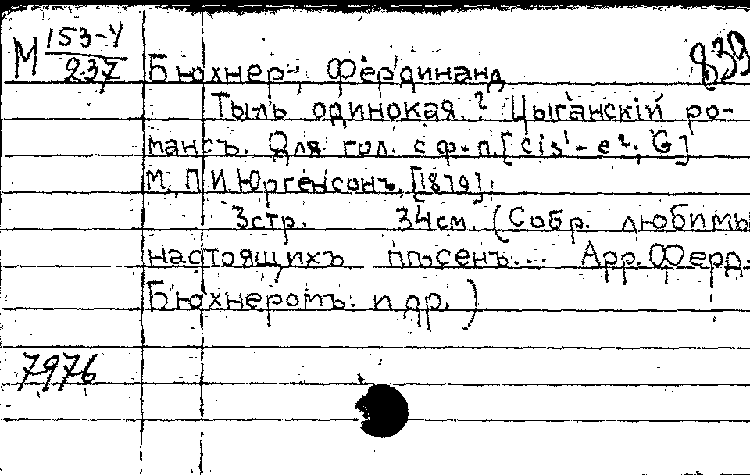 М 153-У
237
839
Бюхнер, Фердинанд
Тыль одинокая? Цыганскій ро-
мансъ. Для гол. с ф-п. [cis¹-e²; G]
М, П И Юргенсонъ, [1879].
3 стр. 34 см. (Собр. любимы
настоящихъ пѣсенъ... Арр. Ферд.
Бюхнеромъ. и др.)
7976